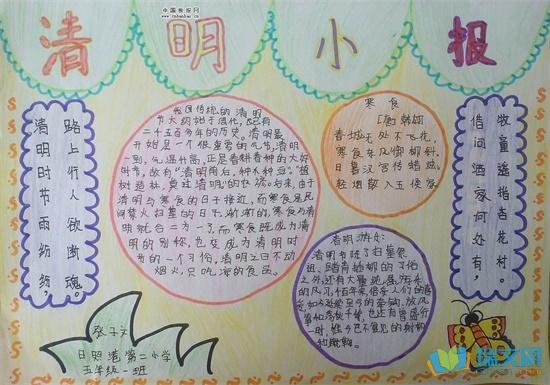 中国板报网
www.cnbanbao.cn
清明小报
清明时节雨纷纷，
路上行人欲断魂。
我国传统的清明
节大约始于周代，已有
二千五百多年的历史。清明最
开始是一个很重要的节气，清明
一到，气温升高，正是春耕春种的大好
时节，故有“清明前后，种瓜种豆”“植
树造林，莫过清明”的农谚。后来，由于
清明与寒食的日子接近，而寒食是民
间禁火扫墓的日子，渐渐的，寒食与清
明就合二为一了，而寒食既成为清
明的别称，也变成为清明时
节的一个习俗，清明之日不动
烟火，只吃凉的食品。
寒食
［唐］韩翃
春城无处不飞花，
寒食东风御柳斜。
日暮汉宫传蜡烛，
轻烟散入五侯家。
借问酒家何处有，
牧童遥指杏花村。
清明游乐：
清明节除了扫墓祭
祖、踏青插柳的习俗
之外，还有大量
日照港第二小学
五年级一班